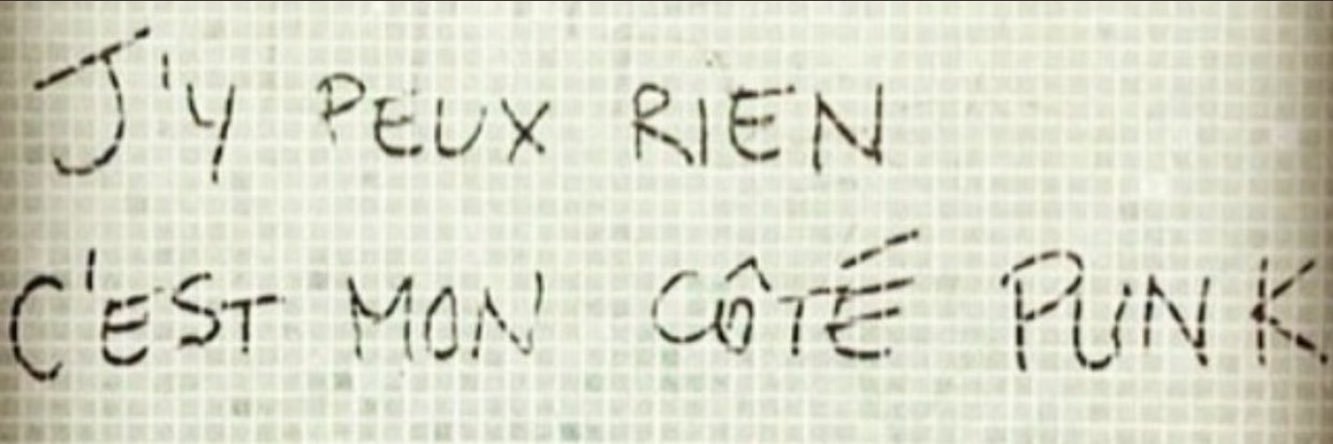 J'Y PEUX RIEN
C'EST MON CÔTÉ PUNK